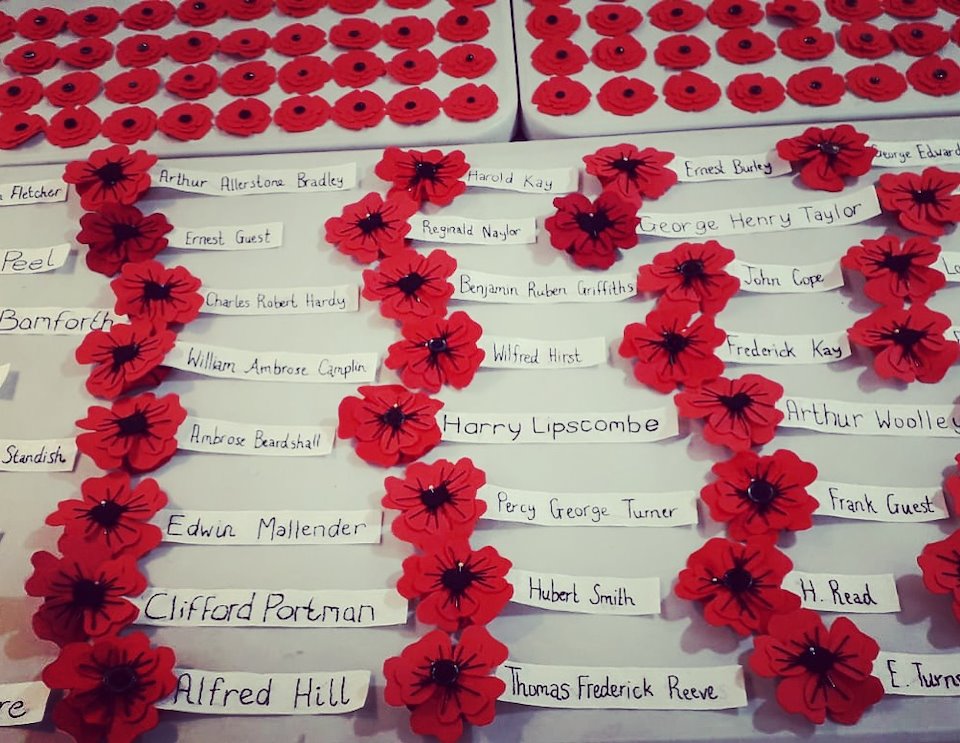 Fletcher
Arthur Allerstone Bradley
Harold Kay
Ernest Burley
George Edward
Ernest Guest
Reginald Naylor
George Henry Taylor
Peel
Charles Robert Hardy
Benjamin Ruben Griffiths
John Cope
Bamforth
William Ambrose Camplin
Wilfred Hirst
Frederick Kay
Standish
Ambrose Beardshall
Harry Lipscombe
Arthur Woolley
Edwin Mallender
Percy George Turner
Frank Guest
Clifford Portman
Hubert Smith
H. Read
Alfred Hill
Thomas Frederick Reeve
E.